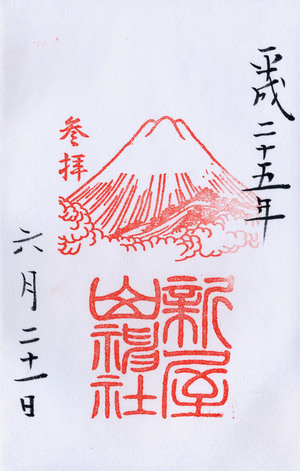 平成二十五年
参拝
新屋
山神社
六月二十一日